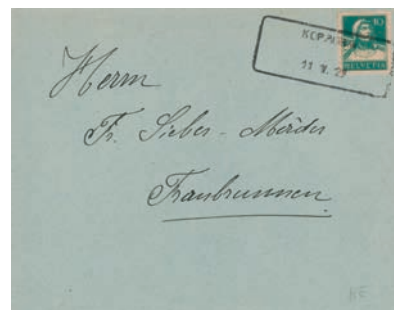 10
HELVETIA
11 V. 2
Herrn
Fr. Sieber - Märder
Fraubrunnen
BE